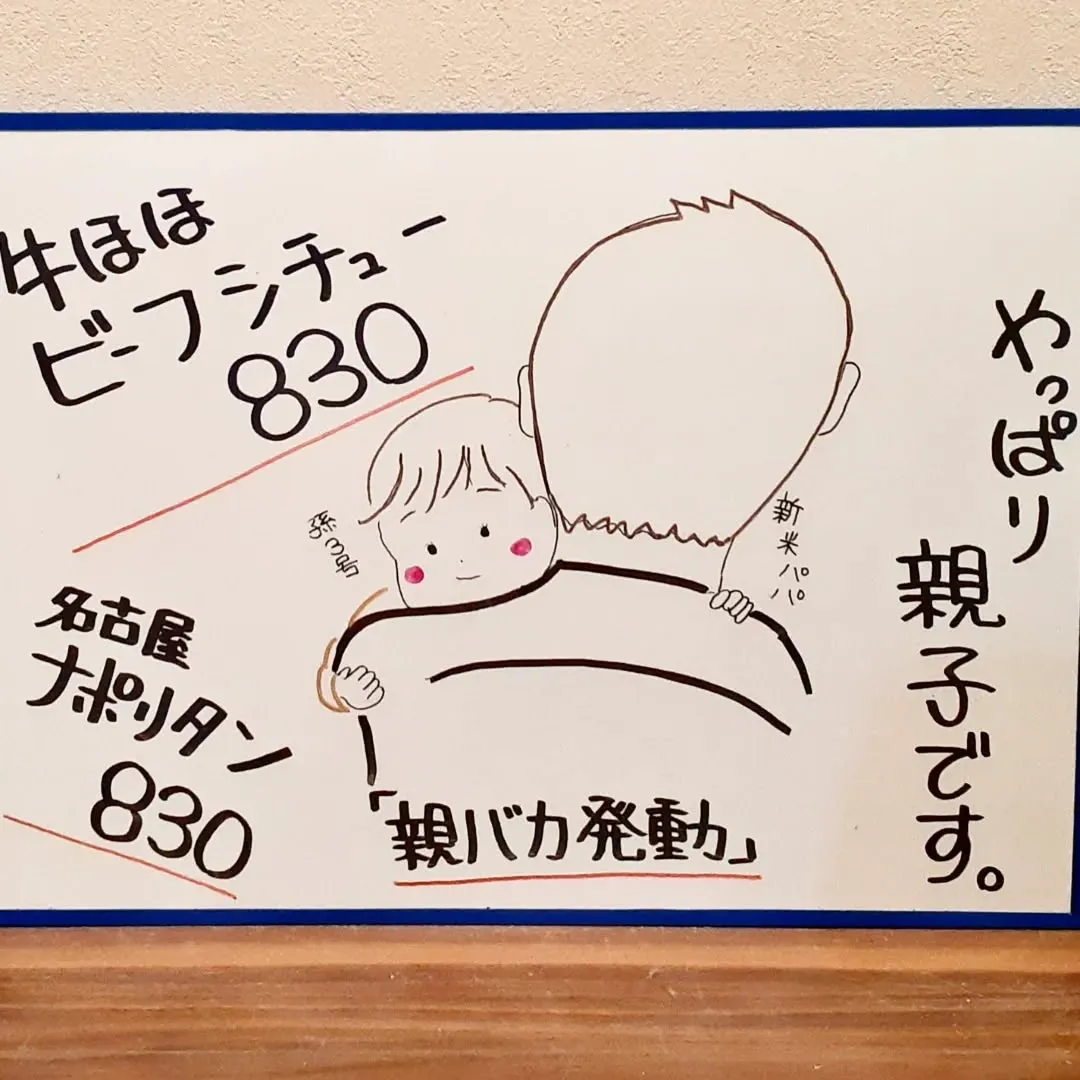 牛ほほ
ビーフシチュー
830
名古屋
ナポリタン
830
孫3号
新米パパ
「親バカ発動」
やっぱり
親子です。